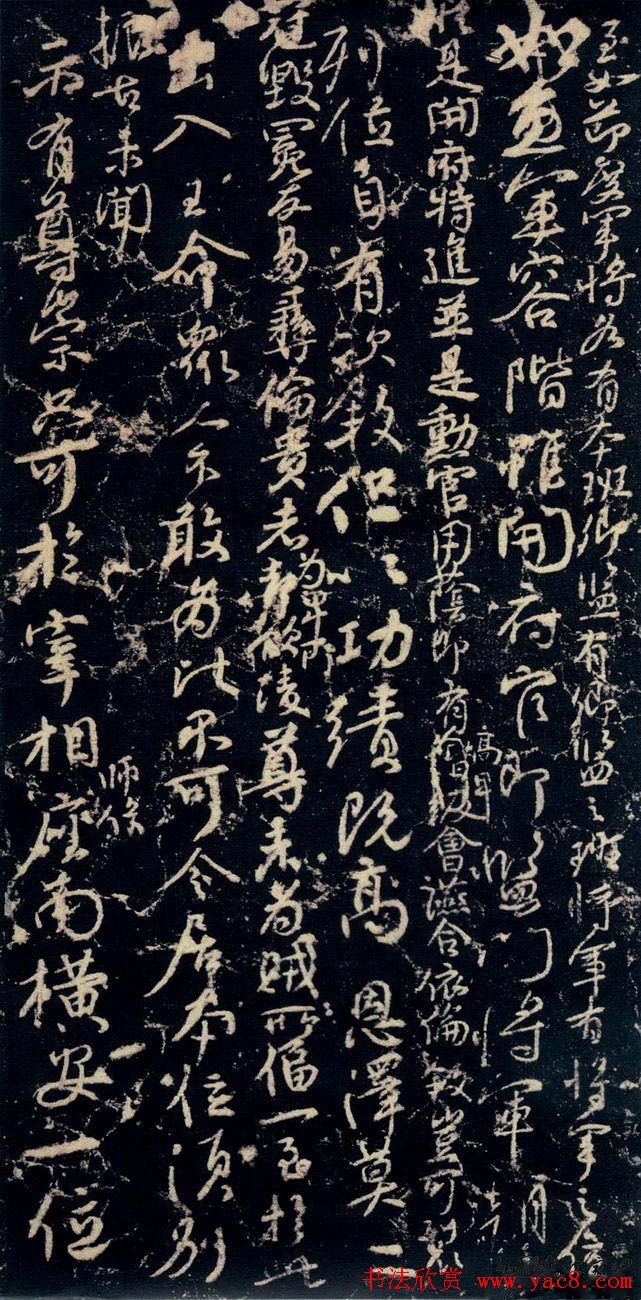 至如節度軍將各有本班卿監有卿監之班將軍有將軍之位
如魚軍容階雖開府官即監門將軍朝
縱是開府特進並是勳官用蔭即有高卑會讌合依倫敘豈可裂
列位自有次敘但以功績既高恩澤莫二
冠毀冕反易彝倫貴者為卑所凌尊者為賊所偪一至於此
出入王命眾人不敢為比不可令居本位須別
振古未聞
示有尊崇只可於宰相師保座南橫安一位
书法欣赏 www.yac8.com